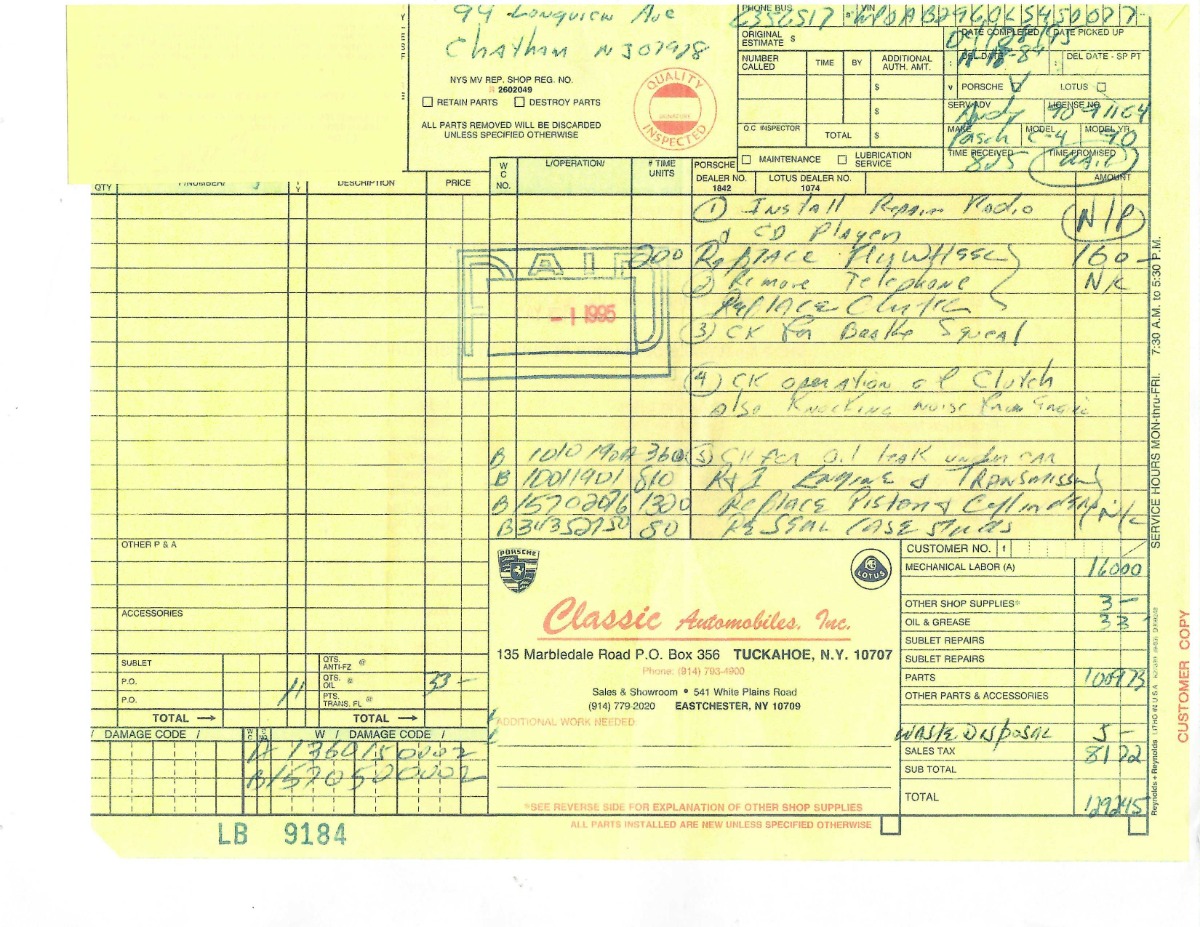 94 Longview Ave
Chatham NJ 07928
NYS MV REP. SHOP REG. NO.
R 2602049
RETAIN PARTS DESTROY PARTS
ALL PARTS REMOVED WILL BE DISCARDED
UNLESS SPECIFIED OTHERWISE
QUALITY
SIGNATURE
INSPECTED
PHONE BUS. VIN
ORIGINAL
ESTIMATE $
DATE COMPLETED DATE PICKED UP
NUMBER
CALLED TIME BY ADDITIONAL
AUTH. AMT.
DEL DATE DEL DATE - SP PT
$
$
$
O.C INSPECTOR TOTAL $
PORSCHE LOTUS
SERV ADV LICENSE NO.
Andy
MAKE MODEL MODEL YR
C-4 90
TIME RECEIVED TIME PROMISED
825 WAIT
MAINTENANCE LUBRICATION
SERVICE
QTY /NUMBER/ DESCRIPTION PRICE
W
C
NO.
L/OPERATION/ # TIME
UNITS
PORSCHE
DEALER NO.
1842
LOTUS DEALER NO.
1074
AMOUNT
1 Install Repair Radio
CD Player N/P
200 Replace Flywheel 160-
2 Remove Telephone N/C
Replace Clutch
PAID
-1 1995
3) CK For Brake Squeal
4) CK operation of Clutch
also Knocking noise from Engine
B 360 5) CK for oil leak under car
B 10011901 810 R&I Engine & Transmission
B 15702076 1320 Replace Piston & Cylinders N/C
B 34352750 80 Reseal Case Studs
SERVICE HOURS MON-thru-FRI. 7:30 A.M. to 5:30 P.M.
OTHER P & A
ACCESSORIES
SUBLET
P.O.
P.O.
TOTAL →
QTS.
ANTI-FZ @
QTS.
OIL @ 33-
PTS.
TRANS. FL @
TOTAL →
/ DAMAGE CODE / W / DAMAGE CODE /
B 1570500002
PORSCHE
LOTUS
Classic Automobiles, Inc.
135 Marbledale Road P.O. Box 356 TUCKAHOE, N.Y. 10707
Phone: (914) 793-4900
Sales & Showroom • 541 White Plains Road
(914) 779-2020 EASTCHESTER, NY 10709
ADDITIONAL WORK NEEDED:
*SEE REVERSE SIDE FOR EXPLANATION OF OTHER SHOP SUPPLIES
ALL PARTS INSTALLED ARE NEW UNLESS SPECIFIED OTHERWISE
CUSTOMER NO. 1
MECHANICAL LABOR (A) 16000
OTHER SHOP SUPPLIES* 3-
OIL & GREASE 33-
SUBLET REPAIRS
SUBLET REPAIRS
PARTS 100973
OTHER PARTS & ACCESSORIES
Waste Disposal 5-
SALES TAX 8172
SUB TOTAL
TOTAL 129245
CUSTOMER COPY
LB 9184